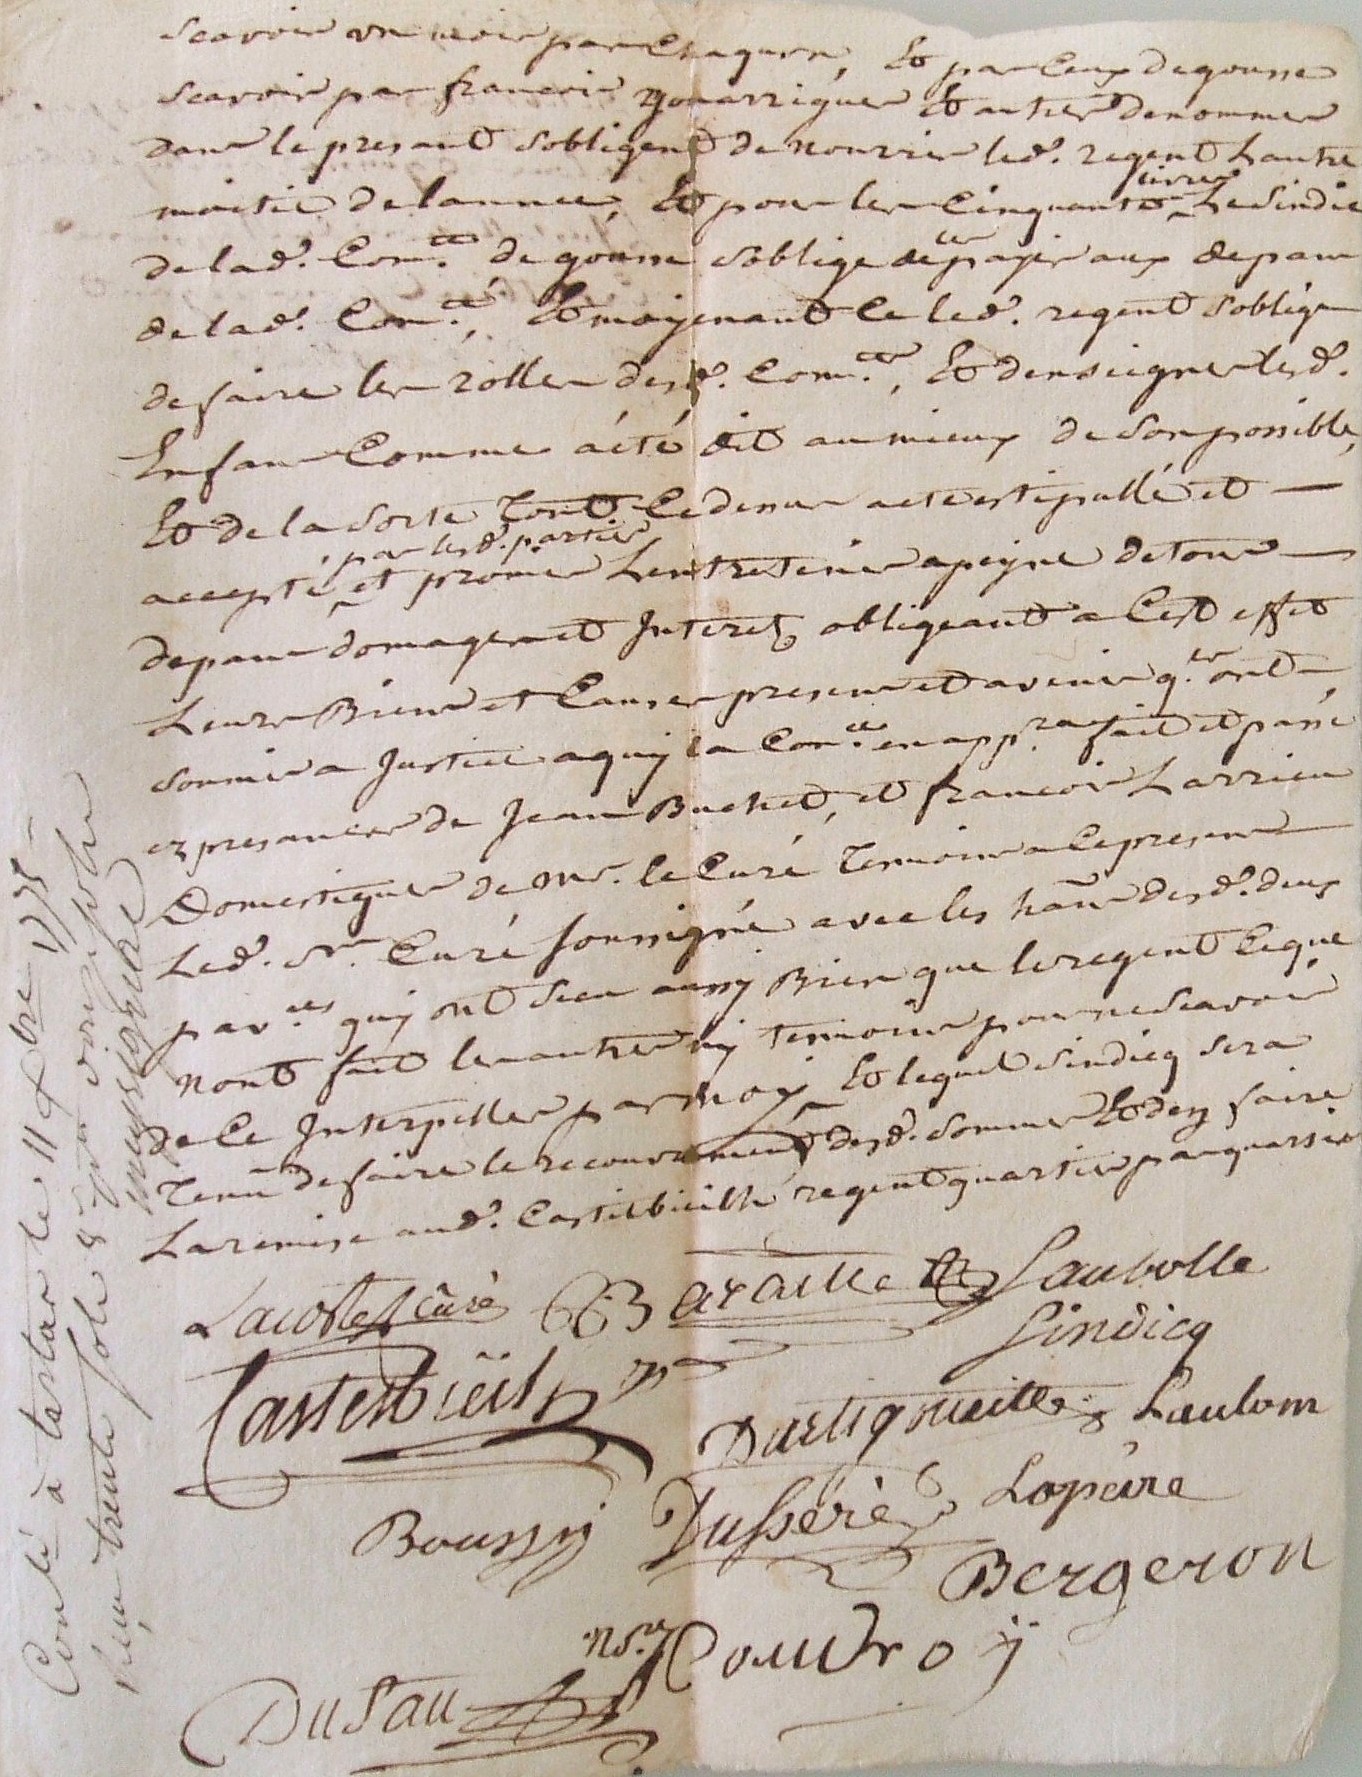 Scavoir un mois par chaqun, Et par ceux degousse
Scavoir par francois Et autres denommes
dans le presant sobligent de nourrir led. regent Lautre
moitié delannee, Et pour les Cinquante livres Le Sindic
delad. Com.té de gousse soblige de les payer aux depans
delad. Com.té, Et moyenant Ce led. regent soblige
defaire les rolles desd. Com.tés, Et denseigner lesd.
Enfans Comme a été dit au mieux de son possible,
Et de la sorte tout Cedessus a eté stipullé et
accepté par lesd. parties et promis Lentretenir apeyne detous
depans domages et Interets obligeant a Cest effet
Leurs Biens et Causes presens et avenir q.ls ont
soumis a Justice aquy la Con.ce en app.ra fait et passé
ez presances de Jean Buchet, et francois Larrieu
Domestiques de Mr. le Curé temoins a Cepresens
Led. Sr. Curé soussigné avec les hans desd. deux
par.ces quy ont sceu aussy Bien que leregent Ceque
nont fait les autres ny temoins pour ne scavoir
de Ce Interpelles par moy Et lequel sindicq sera
tenu defaire le recouvrement desd. sommes Et den faire
Laremise aud. Castetbieilh regent quartier par quartier
Lacoste curé Baraille Laubolle
Sindicq
Castetbieilh
Dartigoueitte Laulom
Boussy Dusseré Lopeire
Bergeron
Coudroÿ
DuSau
Conlé à tartas le 11e xbre
Reçu trente sols